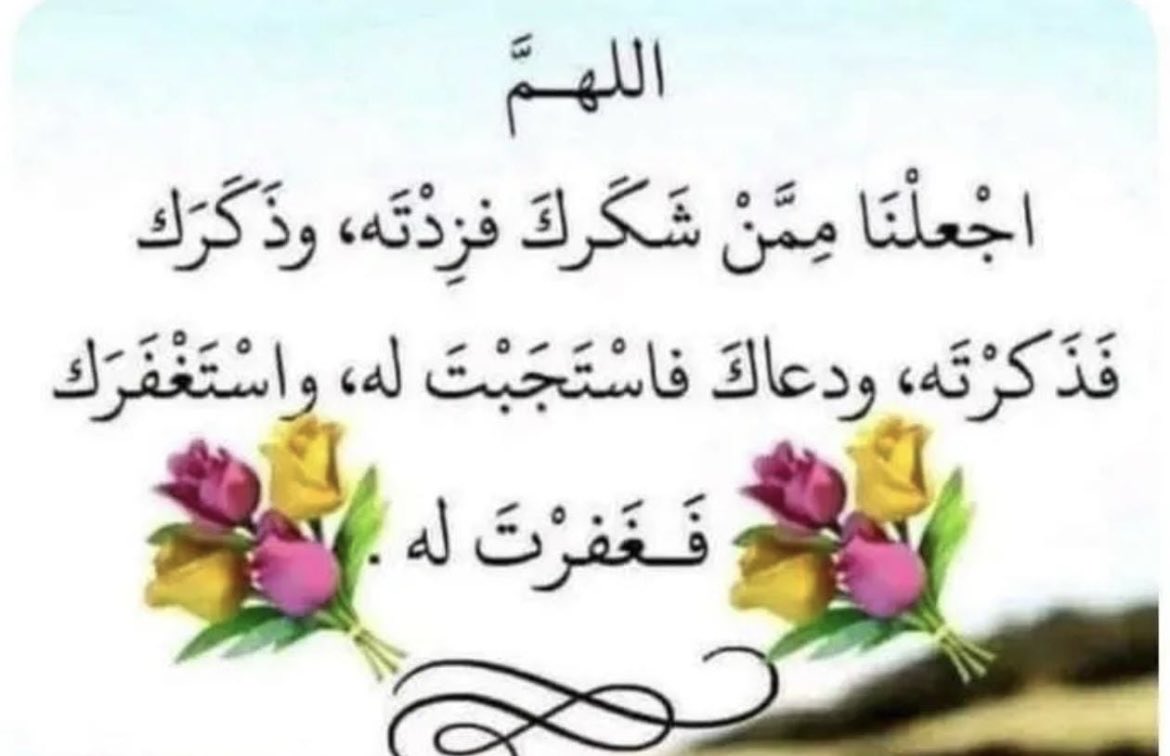 اللهـمَّ
اجْعلْنَا مِمَّنْ شَكَركَ فزِدْتَه، وذَكَرَك
فَذَكرْتَه، ودعاكَ فاسْتَجَبْتَ له، واسْتَغْفَرَك
فَـغَفرْتَ له .